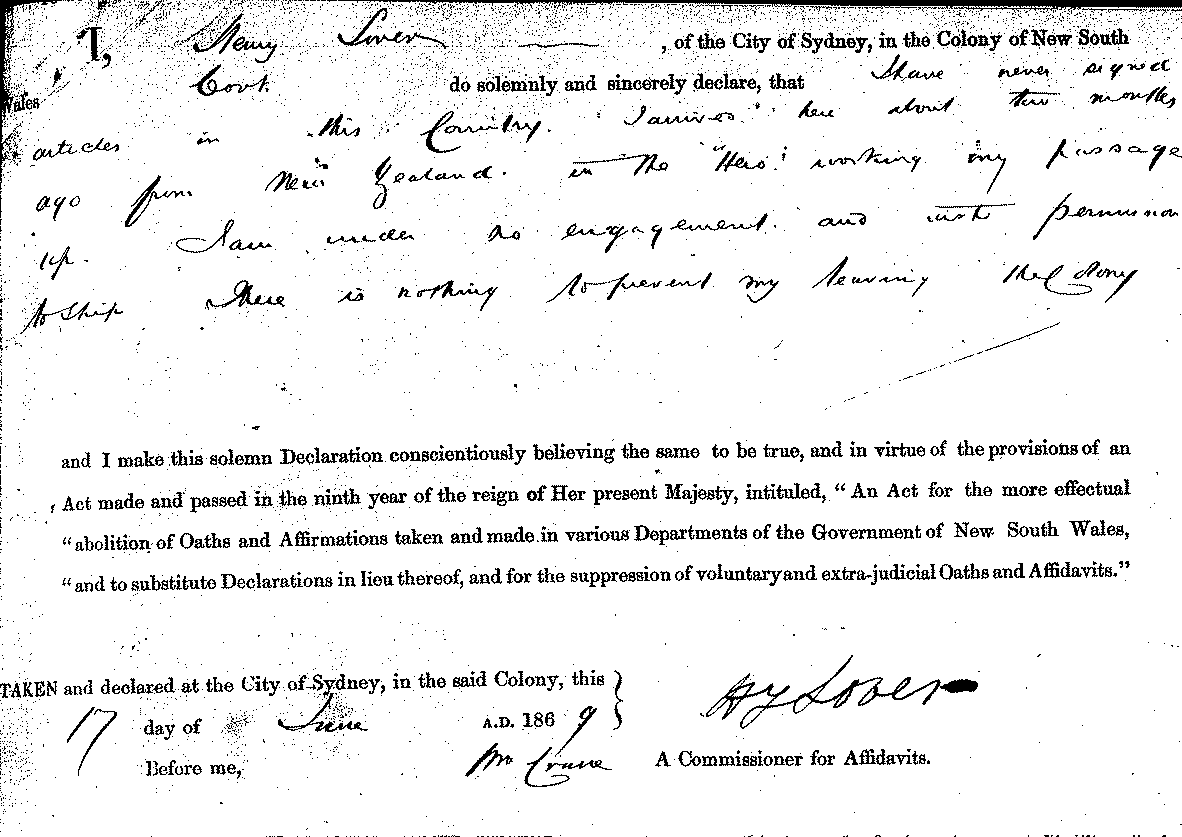 I, Henry Lover , of the City of Sydney, in the Colony of New South
Wales do solemnly and sincerely declare, that I have never signed
articles in this Country. I arrived here about two months
ago from New Zealand. in the "Hero" working my passage
up. I am under no engagement. and wish permission
to ship There is nothing to prevent my leaving the Colony
and I make this solemn Declaration conscientiously believing the same to be true, and in virtue of the provisions of an
Act made and passed in the ninth year of the reign of Her present Majesty, intituled, "An Act for the more effectual
"abolition of Oaths and Affirmations taken and made in various Departments of the Government of New South Wales,
"and to substitute Declarations in lieu thereof, and for the suppression of voluntary and extra-judicial Oaths and Affidavits."
TAKEN and declared at the City of Sydney, in the said Colony, this
17 day of June A.D. 1869
Hy Lover
Before me, Wm Crane A Commissioner for Affidavits.